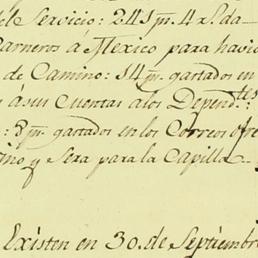 del Servicio: 241 p.s 4 r.s da
Carneros á Mexico para havio
de Camino: 14 p.s gastados en
y ásus Cuentas alos Depend.tes
: 8 p.s gastados en los Correos ofre
ino y Sera para la Capilla
Existen en 30. de Septiembre